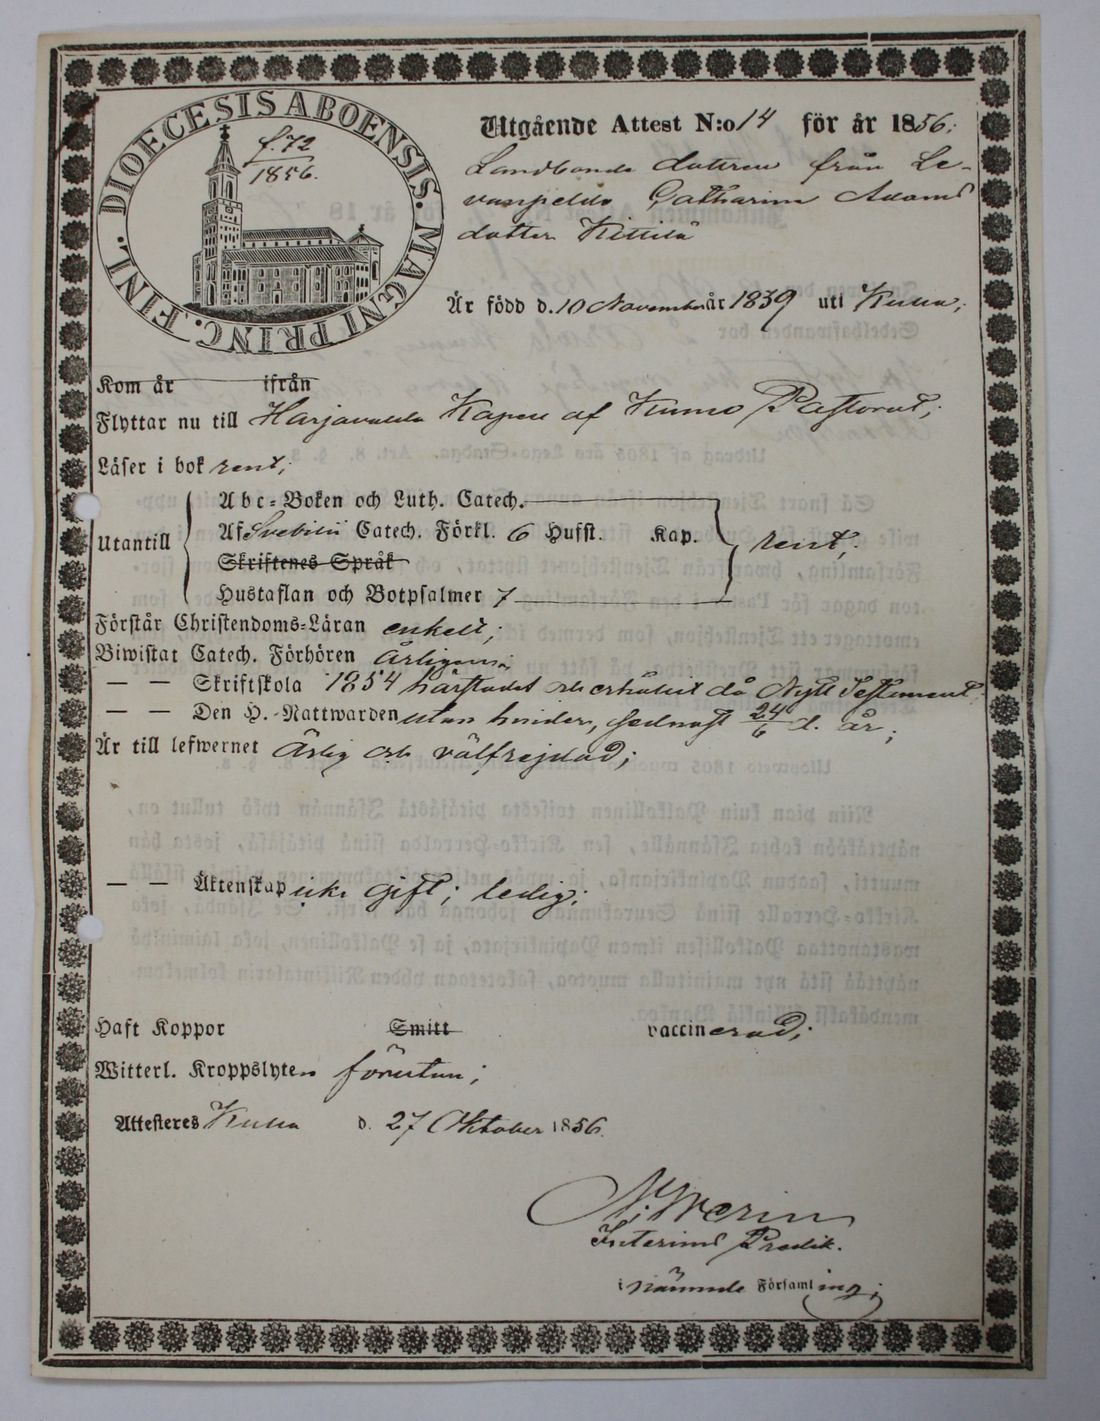 DIOECESIS ABOENSIS. MAGNI PRINC. FINL.
f. 72
1856.
Utgående Attest N:o 14 för år 1856;
Landbonde dottren från Le-
Catharina Adams
dotter Kittilä
Är född d. 10 November år 1839 uti Kulla;
Kom år ifrån
Flyttar nu till Harjavalda Kapell af Kumo Pastorat;
Läser i bok rent;
Utantill
Abc-Boken och Luth. Catech.
Af Svebilii Catech. Förkl. 6 Hufst. Kap.
rent;
Skriftenes Språk
Hustaflan och Botpsalmer 7
Förstår Christendoms-Läran enkelt;
Biwistat Catech. Förhören årligen;
— — Skriftskola 1854 härstädes och erhållit då Nytt Testament
— — Den H. Nattwarden utan hinder, sednast 24/6 d. år;
Är till lefwernet ärlig och välfrejdad;
— — Äktenskap icke gift; ledig;
Haft Koppor Smitt vaccinerad;
Witterl. Kroppslyten förutan;
Attesteres Kulla d. 27 Oktober 1856.
Interims Predik.
i nämnde Församling;